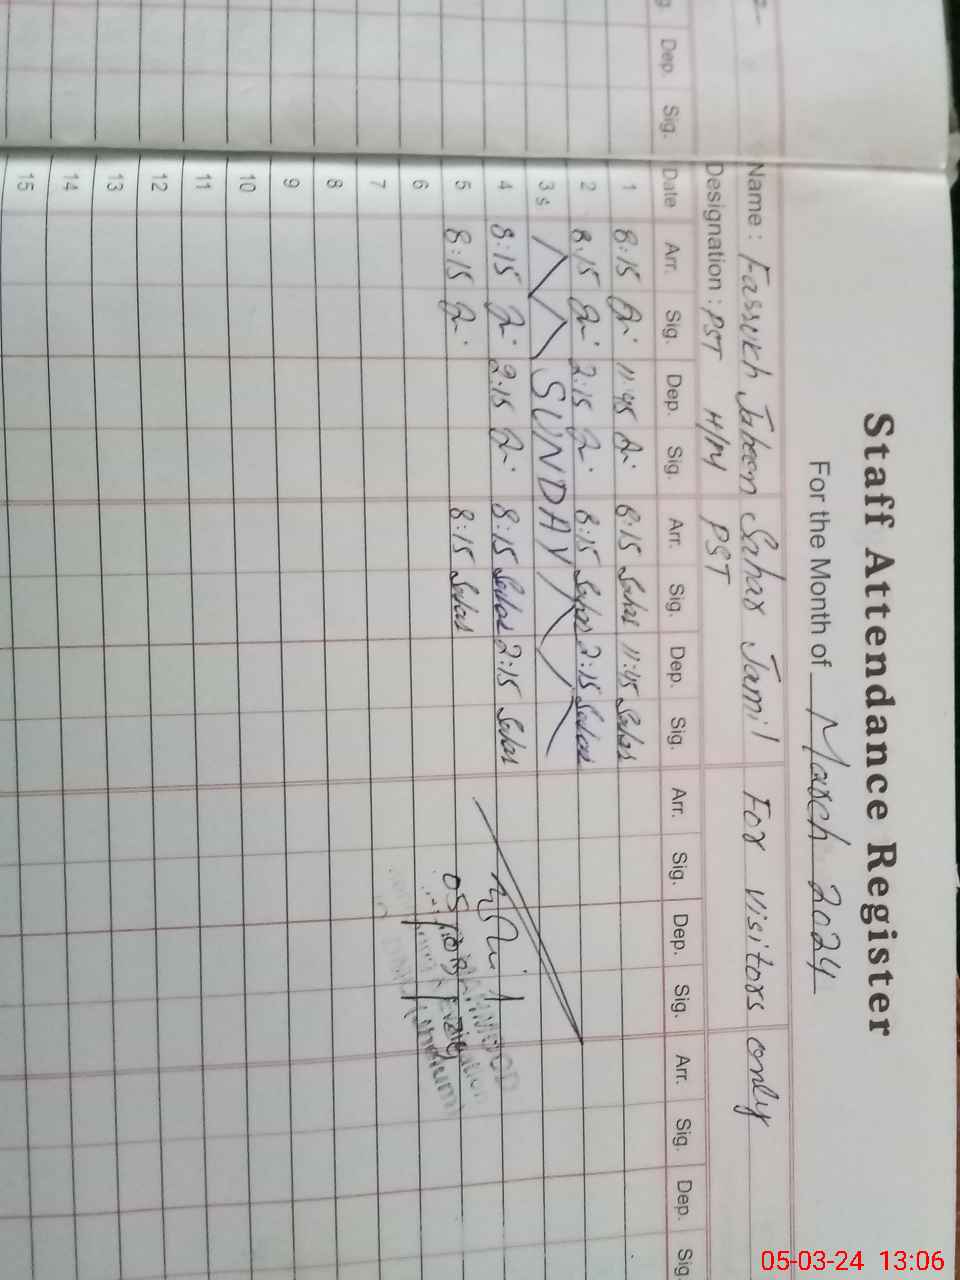 Staff Attendance Register
For the Month of March 2024
Name: Farrukh Jabeen Sahar Jamil For visitors only
Designation: PST H/M PST
Dep. Sig. Date Arr. Sig. Dep. Sig. Arr. Sig. Dep. Sig. Arr. Sig. Dep. Sig. Arr. Sig. Dep. Sig.
1 8:15 11:45 8:15 Sahar 11:45 Sahar
2 8:15 2:15 8:15 Sahar 2:15 Sahar
3 S SUNDAY
4 8:15 2:15 8:15 Sahar 2:15 Sahar
5 8:15 8:15 Sahar 05/03/24
6
7
8
9
10
11
12
13
14
15
05-03-24 13:06